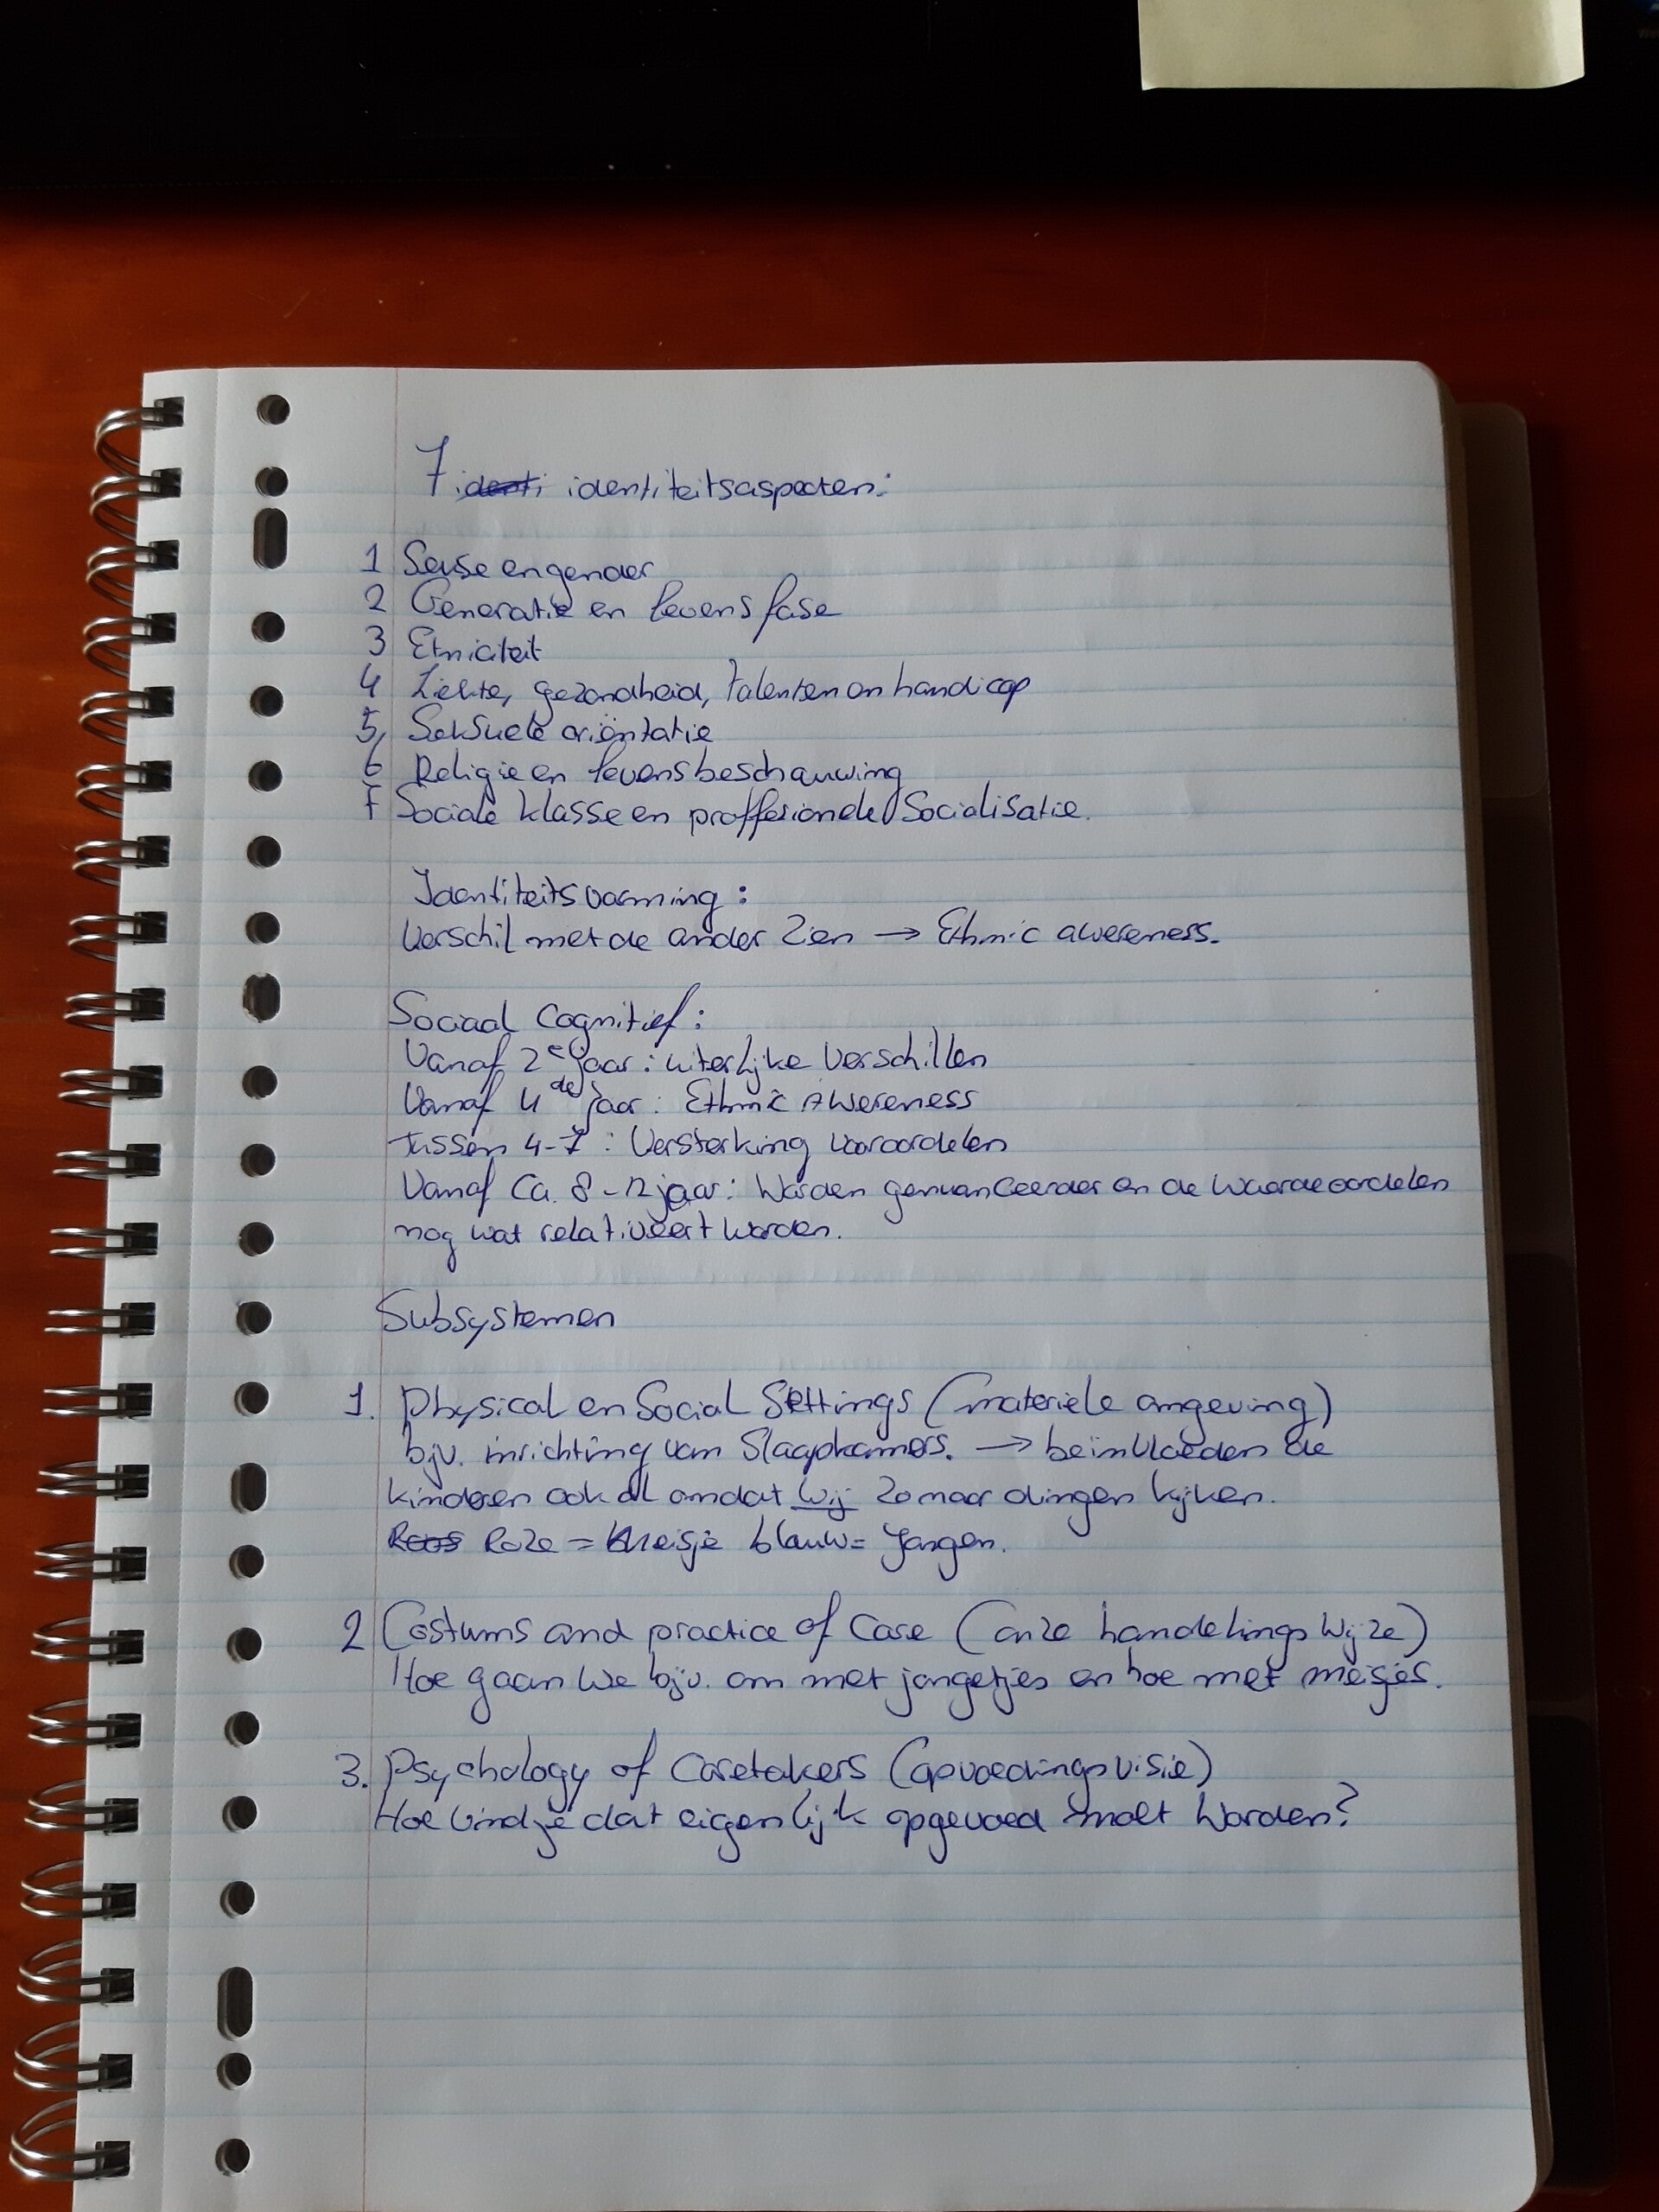 7 identiteitsaspecten:
1 Sekse en gender
2 Generatie en levensfase
3 Etniciteit
4 Ziekte, gezondheid, talenten en handicap
5, Seksuele oriëntatie
6 Religie en levensbeschouwing
7 Sociale klasse en proffesionele Socialisatie.
Identiteitsvorming:
Verschil met de ander zien → Ethnic awereness.
Sociaal Cognitief:
Vanaf 2e jaar: uiterlijke verschillen
Vanaf 4de jaar: Ethnic Awereness
Tussen 4-7: Versterking vooroordelen
Vanaf ca. 8-12 jaar: Worden genuanceerder en de waardeoordelen
nog wat relativeert worden.
Subsystemen
1. Physical en Social Settings (materiele omgeving)
bjv. inrichting van Slaapkamers. → beïnvloeden de
kinderen ook al omdat wij zo naar dingen kijken.
Roze = Meisje blauw = Jongen.
2 Costums and practice of Care (onze handelingswijze)
Hoe gaan we bjv. om met jongetjes en hoe met meisjes.
3. Psychology of Caretakers (opvoedingsvisie)
Hoe vind je dat eigenlijk opgevoed moet worden?